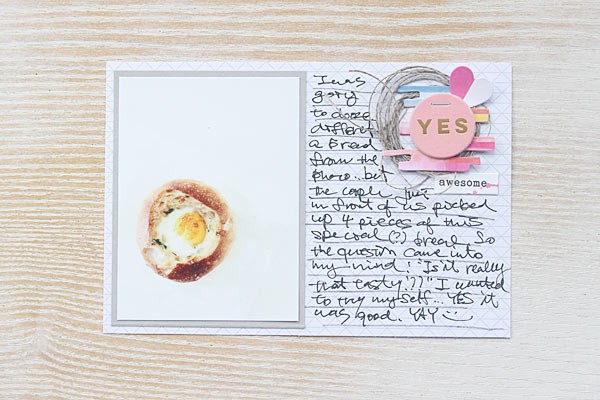 I was
going
to choose
different
a Bread
from the
photo.. but
the couple just
in front of us picked
up 4 pieces of this
special (?) bread. So
the question came into
my mind: "Is it really
that tasty!??" I wanted
to try my self... YES it
was good. YAY
YES
awesome